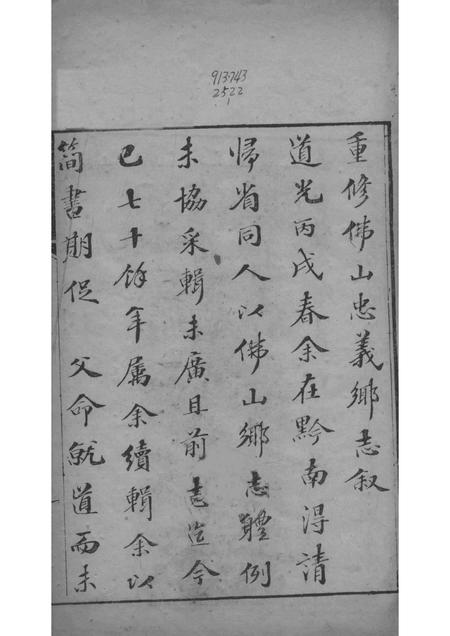 913.743
2522
1
重修佛山忠義鄉志叙
道光丙戌春余在黔南得請
歸省同人以佛山鄉志體例
未協采輯未廣且前志迄今
已七十餘年属余續輯余以
简書期促 父命就道而未